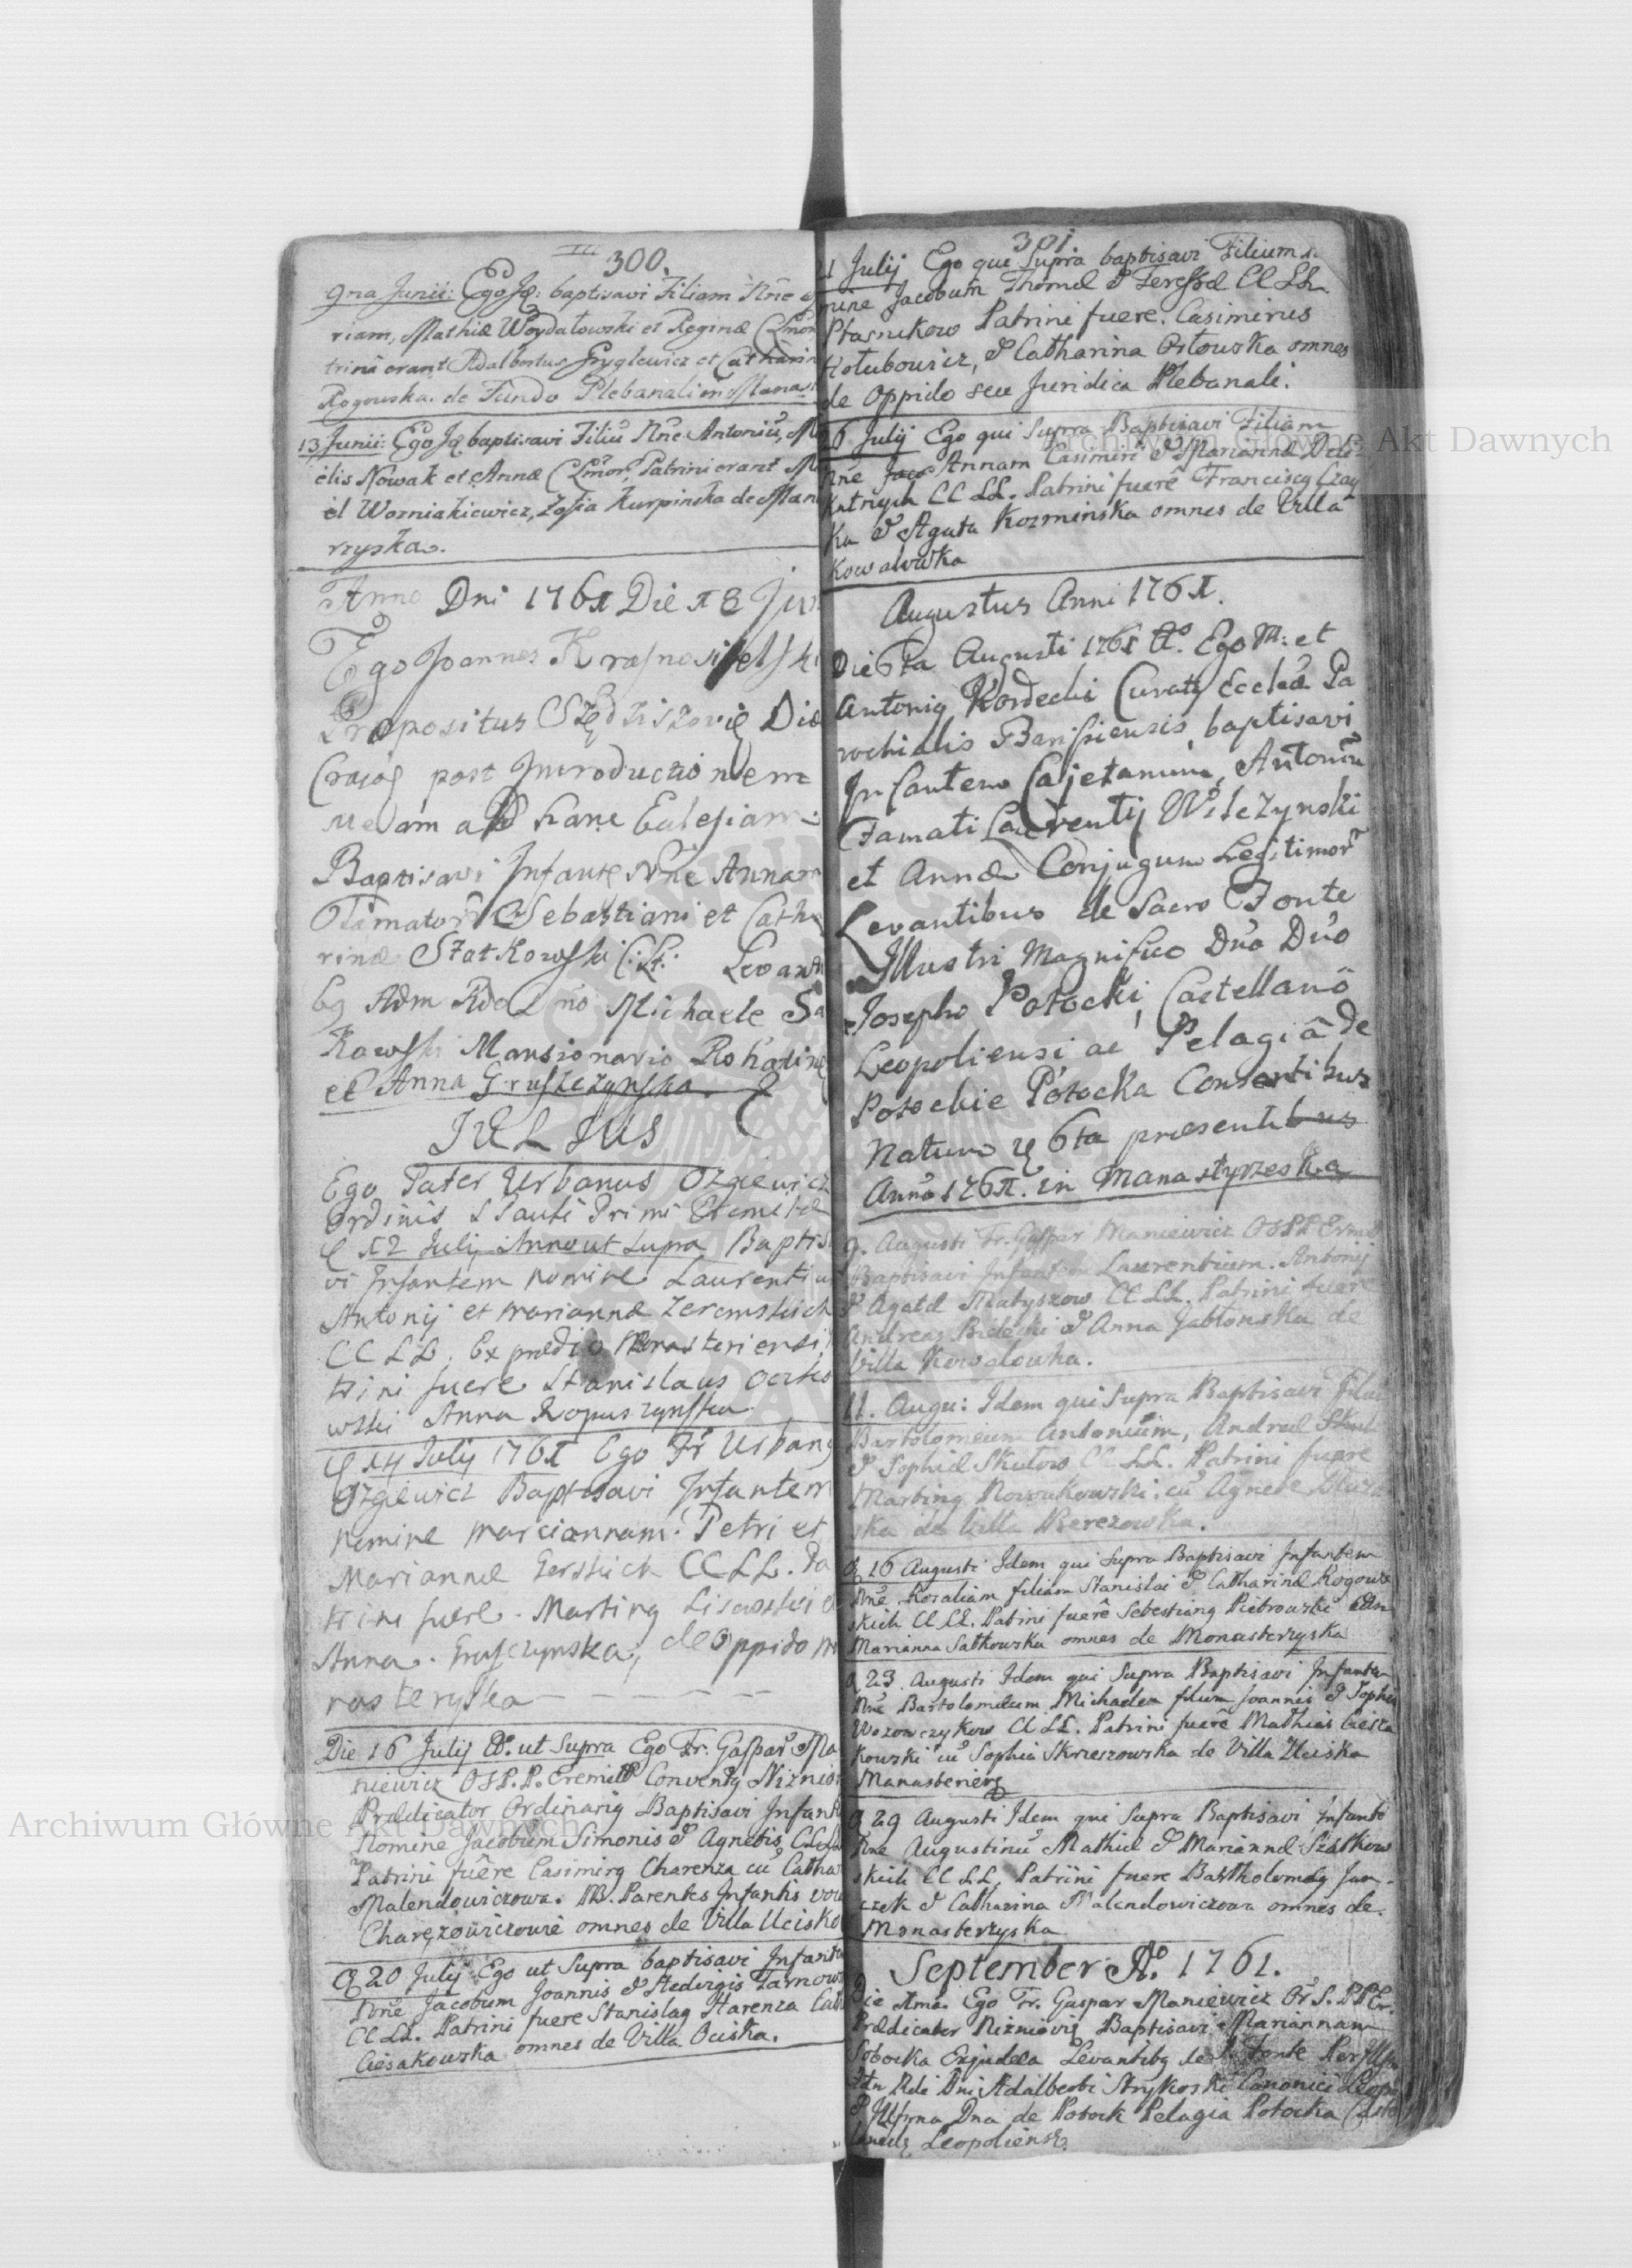 300.
9na Junii: Ego Jq: baptisavi Filiam Nne
riam, Mathiæ Woydatowski et Reginæ CLmor
trini erant Adalbertus Gryglewicz et Catharin
Rogowska. de Fundo Plebanali in Manas
13 Junii: Ego Jq baptisavi Filiũ Nne Antoniũ, M
elis Nowak et Annæ CLmor, Patrini erant M
el Wozniakiewicz, Zofia Kurpinska de Man
rzyska.
Anno Dni 1761 Die 18 Jun
Ego Joannes Krasnosielski
Præpositus Szędziszovię Diæ
post Introductionem
meam ad hanc Eclesiam
Baptisavi Infantẽ Nne Annam
Famatorũ Sebastiani et Catha
rinæ Statkowski C: L: Levanti
bq Adm Rdo Dno Michaele Sa
kowski Mansionario Rohatine
et Anna Gruszczynska.
JULIUS
Ego Pater Urbanus Ozgiewicz
Ordinis S Pauli Primi Eremitæ
12 Julij Anno ut supra Baptisa
vi Infantem nomine Laurentius
Antonij et Mariannæ Zeremskich
CC LL. Ex prædio Monasteriensi,
trini fuere Stanislaus
wski Anna Kopuszynska
14 Julij 1761 Ego Fr Urbanq
Ozgiewicz Baptisavi Infantem
nomine Mariannam. Petri et
Mariannæ Gerskich CC LL. Pa
trini fuere. Martinq Lisowski e
Anna. Gruszczynska, de Oppido Mo
nasteryska
Die 16 Julij Ao. ut Supra Ego Fr. Gaspar Ma
niewicz OSP.P. Eremitæ Conventq Nizniov
Prædicator Ordinariq Baptisavi Infante
Nomine Jacobum Simonis & Agnetis CCLL
Patrini fuêre Casimirq Charenza cũ Catha
Malendowiczowa. NB. Parentes Infantis voc
Charęzowiczowie omnes de Villa Ucisko
20 Julij Ego ut Supra baptisavi Infante
Nne Jacobum Joannis & Hedvigis Tarnow
CC LL. Patrini fuere Stanislaq Harenza Cath
Ciesakowska omnes de Villa Ociska.
301.
1 Julij Ego qui Supra baptisavi Filium
mine Jacobum Thomæ & Teressæ CC LL
Ptasnikow Patrini fuere. Casimirus
Hotubowicz, & Catharina Ortowska omnes
de Oppido seu Juridica Plebanali.
6 Julij Ego qui Supra Baptisavi Filiam
Nne Annam Casimiri & Mariannæ Deli
katnych CC LL. Patrini fuerê Franciscq Czay
ka & Agata Kozminska omnes de Villa
Kowalowka
Augustus Anni 1761.
Die 6ta Augusti 1761 Ao. Ego M: et
Antoniq Kordecki Curatq Ecclæ Pa
rochialis Barisiensis, baptisavi
Infantem Cajetanum, Antoniũ
Famati Laurentij Wilczynski
et Annæ Conjugum Legitimor
Levantibus de Sacro Fonte
Illustri Magnifico Dno Dno
Josepho Potocki, Castellano
Leopoliensi ac Pelagiâ de
Potockie Potocka Consortibus
Natum 6ta præsentibus
Anno 1761. in Manastyrzeska
9. Augusti Fr. Gaspar Maniewicz OSPP Ermi
Baptisavi Infantem Laurentium. Antonij
& Agatæ Matyszow CC LL. Patrini fuere
Andreas Bielecki & Anna Jabtonska de
Villa Kowalowka.
11. Augu: Idem qui Supra Baptisavi filiũ
Bartolomeum Antonium, Andreæ Skut
& Sophiæ Skutow CC LL. Patrini fuere
Martinq Nowakowski, cũ Agnete
ska de Villa Berezowka.
16 Augusti Idem qui Supra Baptisavi Infantem
Nnẽ Rozaliam filiam Stanislai & Catharinæ Rogow
skich CC LL. Patrini fuerê Sebestianq Pietrowski
Marianna Satkowska omnes de Monasterzyska
23. Augusti Idem qui Supra Baptisavi Infantem
Nnẽ Bartolomeum Michaelem filium Joannis & Sophiæ
Wozowczykow CC LL. Patrini fuerê Mathias Ciesza
kowski cũ Sophia Skrzeszowska de Villa Uciska
Manasterienq
29 Augusti Idem qui Supra Baptisavi Infante
Nne Augustinũ Mathiæ & Mariannæ Szatkow
skich CC LL. Patrini fuere Bartholomeq Jan-
czek & Catharina Malendowiczowa omnes de
Monasterzyska
September Ao. 1761.
Die 1ma. Ego Fr. Gaspar Maniewicz Or S. PP Er.
Prædicator Nizniovię Baptisavi Mariannam
Sobocka Exjudæa Levantibq de S Fonte Per Illu
Adm Rdi Dni Adalberti Strykoski Canonici Leopo
& Illma Dna de Potock Pelagia Potocka Caste
Leopoliensi.
Archiwum Główne Akt Dawnych
Archiwum Główne Akt Dawnych